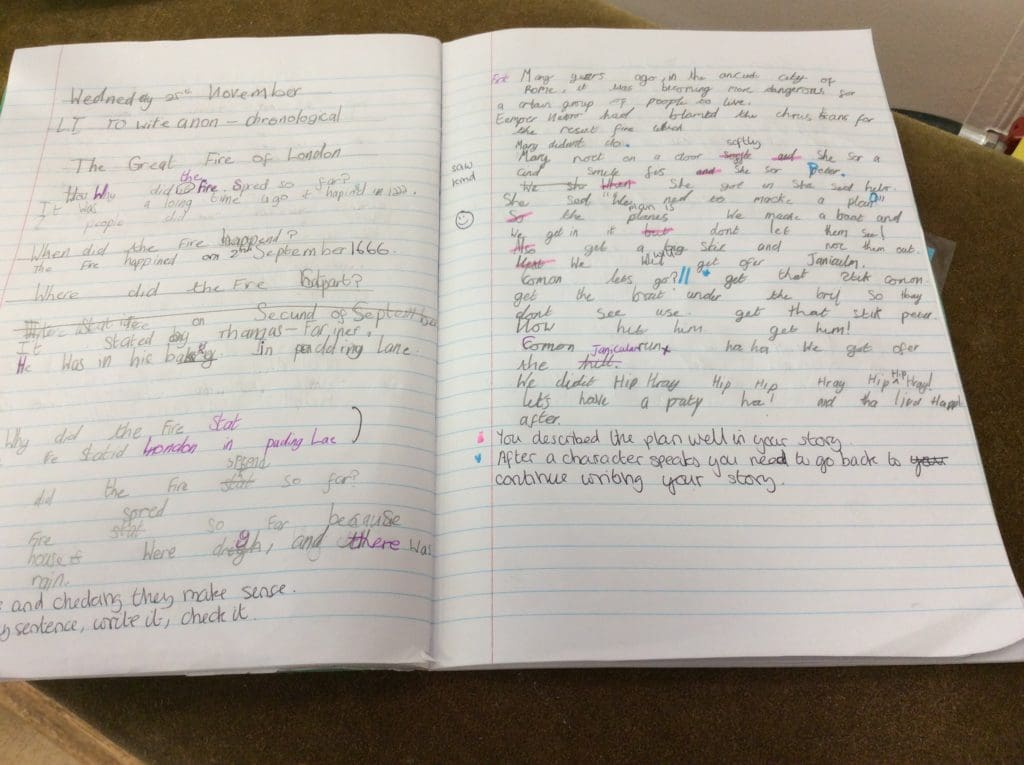 Wednedy 25th November
LI To write a non-chronological
The Great Fire of London
How Why did the Fire Spred so far?
It was a long time ago it happind in 1222.
people did
When did the Fire happend?
the Fire happined on 2nd September 1666.
Where did the Fire
Secund of September
It stated by on Thamas-Fariner.
He was in his bakery. in pudding Lane.
Why did the Fire Stat
Fe statid London in puding Lae
did the Fire spread so far?
Fire spred so far because
houses Were and there was
rain.
and checking they make sense.
sentence, write it, check it
saw
kind
First Many years ago, in the ancient city of
Rome, it was becoming more dangerous for
a certain group of people to live.
Eemper Nearo had blamed the chrustians for
the result fire which
Mary didunt do. softly
Mary noct on a door and She sor a
cind smile fus and She sor Peter.
We sho When She got in She sed helo.
She sed "We ned to macke a plan"
So the plan is We macke a boat and
We get in it but dont let them see!
Also get a big stic and noc them out.
Next We Will get ofer Janiculm.
Comon lets go? get that stik comon.
get the boat under the brij So thay
dont see use. get that stik peter.
Now hit him get hum!
Comon run haha We got ofer
the Janiculan hill.
We didit Hip Hray Hip Hip Hray Hip Hip Hray!
Let's have a paty ha! and tha lived Happl
after.
You described the plan well in your story.
After a character speaks you need to go back to your
continue writing your story.